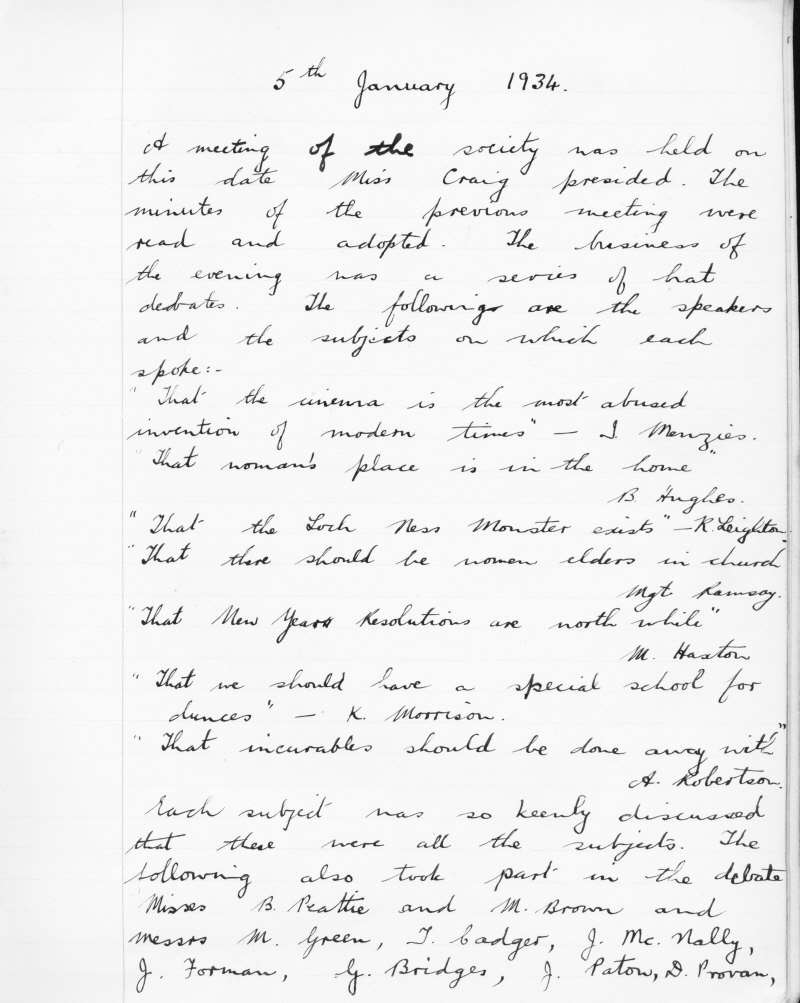 5th January 1934.
A meeting of the society was held on
this date Miss Craig presided. The
minutes of the previous meeting were
read and adopted. The business of
the evening was a series of hat
debates. The following are the speakers
and the subjects on which each
spoke:-
"That the cinema is the most abused
invention of modern times" - I. Menzies.
"That woman's place is in the home"
B. Hughes.
"That the Loch Ness Monster exists" - R. Leighton.
"That there should be women elders in church
Mgt Ramsay.
"That New Years Resolutions are worth while"
M. Haxton
"That we should have a special school for
dunces" - K. Morrison.
"That incurables should be done away with"
A. Robertson.
Each subject was so keenly discussed
that these were all the subjects. The
following also took part in the debate
Misses B. Peattie and M. Brown and
messrs M. Green, T. Cadger, J. Mc. Nally,
J. Forman, G. Bridges, J. Paton, D. Provan,